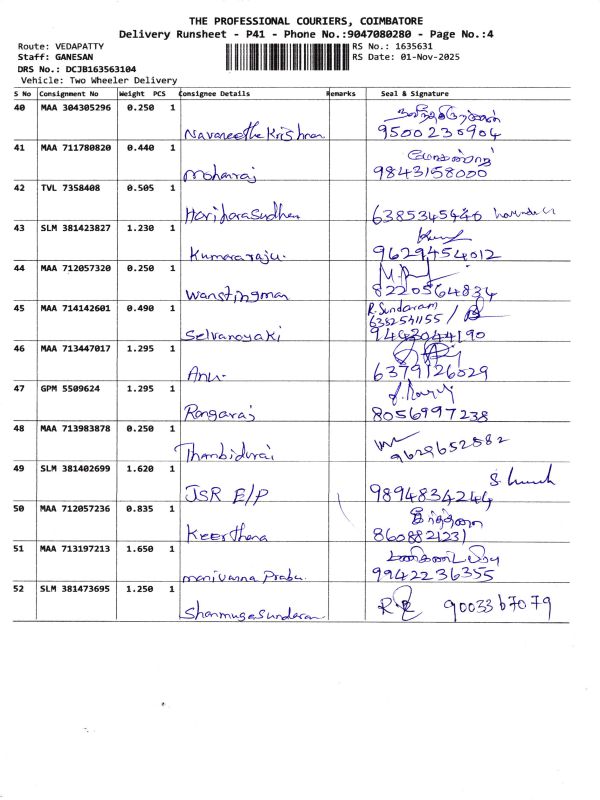 THE PROFESSIONAL COURIERS, COIMBATORE
Delivery Runsheet - P41 - Phone No.:9047080280 - Page No.:4
Route: VEDAPATTY RS No.: 1635631
Staff: GANESAN RS Date: 01-Nov-2025
DRS No.: DCJB163563104
Vehicle: Two Wheeler Delivery
S No Consignment No Weight PCS Consignee Details Remarks Seal & Signature
40 MAA 304305296 0.250 1
Navaneetha Krishnan 9500230904
41 MAA 711780820 0.440 1
Mohanraj 9843158000
42 TVL 7358408 0.505 1
Hariharasudhan 6385345446
43 SLM 381423827 1.230 1
Kumararaju. 9629454012
44 MAA 712057320 0.250 1
Wanstingman 8220564834
45 MAA 714142601 0.490 1 R. Sundaram
6382541155 /
Selvanayaki 9443044190
46 MAA 713447017 1.295 1
Anu. 6379126029
47 GPM 5509624 1.295 1
Rangaraj 8056997238
48 MAA 713983878 0.250 1
Thambidurai 9629652582
49 SLM 381402699 1.620 1
JSR E/P 9894834244
50 MAA 712057236 0.835 1 கீர்த்தனா
Keerthana 8608821231
51 MAA 713197213 1.650 1
Manivanna Prabu. 9942236355
52 SLM 381473695 1.250 1
Shanmugasundaram 9003367079